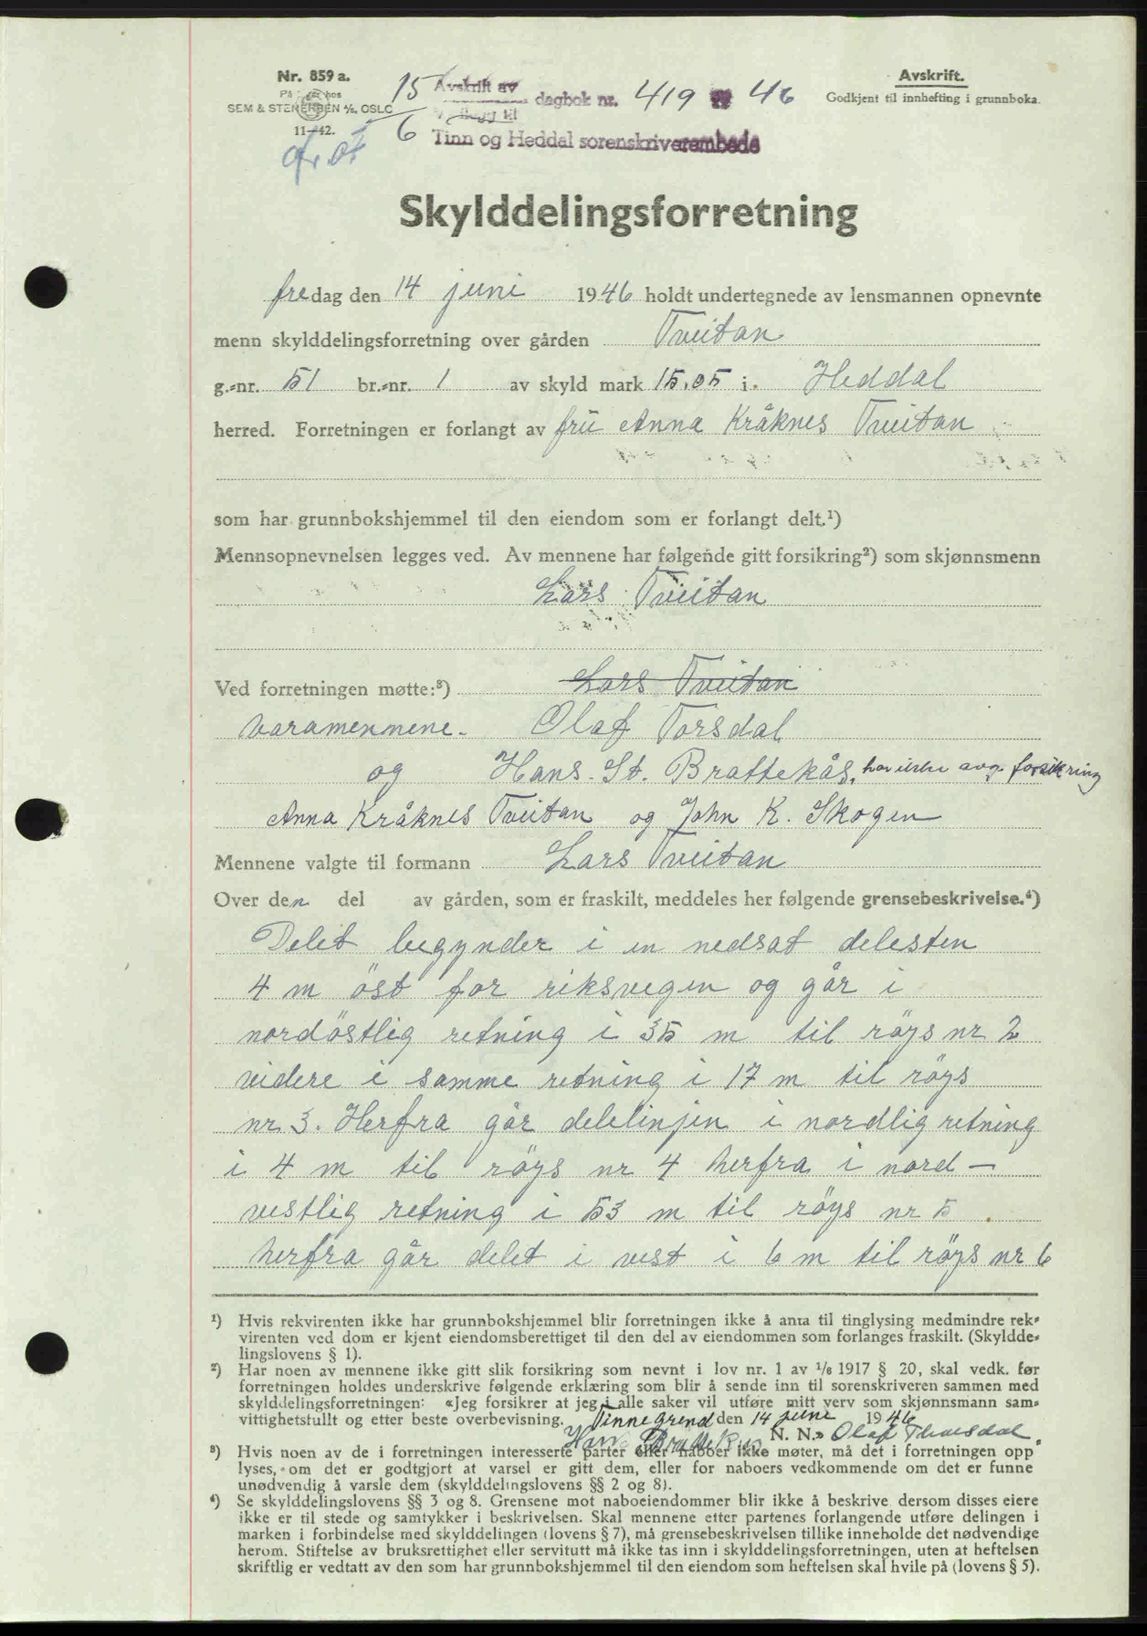 Nr. 859 a.
SEM & STENERSEN A/S, OSLO
11—42.
15/6
Avskrift av
dagbok nr. 419 46
Tinn og Heddal sorenskriverembede
Avskrift.
Godkjent til innhefting i grunnboka.
Skylddelingsforretning
fredag den 14 juni 1946 holdt undertegnede av lensmannen opnevnte
menn skylddelingsforretning over gården Tveitan
g.-nr. 51 br.-nr. 1 av skyld mark 15.05 i Heddal
herred. Forretningen er forlangt av fru Anna Kråknes Tveitan
som har grunnbokshjemmel til den eiendom som er forlangt delt.¹)
Mennsopnevnelsen legges ved. Av mennene har følgende gitt forsikring²) som skjønnsmenn
Lars Tveitan
Ved forretningen møtte:³) Lars Tveitan
varamennene. Olaf Torsdal
og Hans. St. Brattekås, har ikke avg. forsikring
Anna Kråknes Tveitan og John K. Skogen
Mennene valgte til formann Lars Tveitan
Over den del av gården, som er fraskilt, meddeles her følgende grensebeskrivelse.⁴)
Delet begynder i en nedsat delesten
4 m öst for riksvegen og går i
nordöstlig retning i 35 m til röys nr 2
videre i samme retning i 17 m til röys
nr. 3. Herfra går delelinjen i nordlig retning
i 4 m til röys nr 4 herfra i nord-
vestlig retning i 53 m til röys nr 5
herfra går delet i vest i 6 m til röys nr 6
¹) Hvis rekvirenten ikke har grunnbokshjemmel blir forretningen ikke å anta til tinglysing medmindre rek-
virenten ved dom er kjent eiendomsberettiget til den del av eiendommen som forlanges fraskilt. (Skyldde-
lingslovens § 1).
²) Har noen av mennene ikke gitt slik forsikring som nevnt i lov nr. 1 av 1/6 1917 § 20, skal vedk. før
forretningen holdes underskrive følgende erklæring som blir å sende inn til sorenskriveren sammen med
skylddelingsforretningen: «Jeg forsikrer at jeg i alle saker vil utføre mitt verv som skjønnsmann sam-
vittighetsfullt og etter beste overbevisning. Tinnegrend den 14 juni 1946
Hans Brattekås N. N.» Olaf Thorsdal
³) Hvis noen av de i forretningen interesserte parter eller naboer ikke møter, må det i forretningen opp-
lyses, om det er godtgjort at varsel er gitt dem, eller for naboers vedkommende om det er funne
unødvendig å varsle dem (skylddelingslovens §§ 2 og 8).
⁴) Se skylddelingslovens §§ 3 og 8. Grensene mot naboeiendommer blir ikke å beskrive dersom disses eiere
ikke er til stede og samtykker i beskrivelsen. Skal mennene etter partenes forlangende utføre delingen i
marken i forbindelse med skylddelingen (lovens § 7), må grensebeskrivelsen tillike inneholde det nødvendige
herom. Stiftelse av bruksrettighet eller servitutt må ikke tas inn i skylddelingsforretningen, uten at heftelsen
skriftlig er vedtatt av den som har grunnbokshjemmel til den eiendom som heftelsen skal hvile på (lovens § 5).